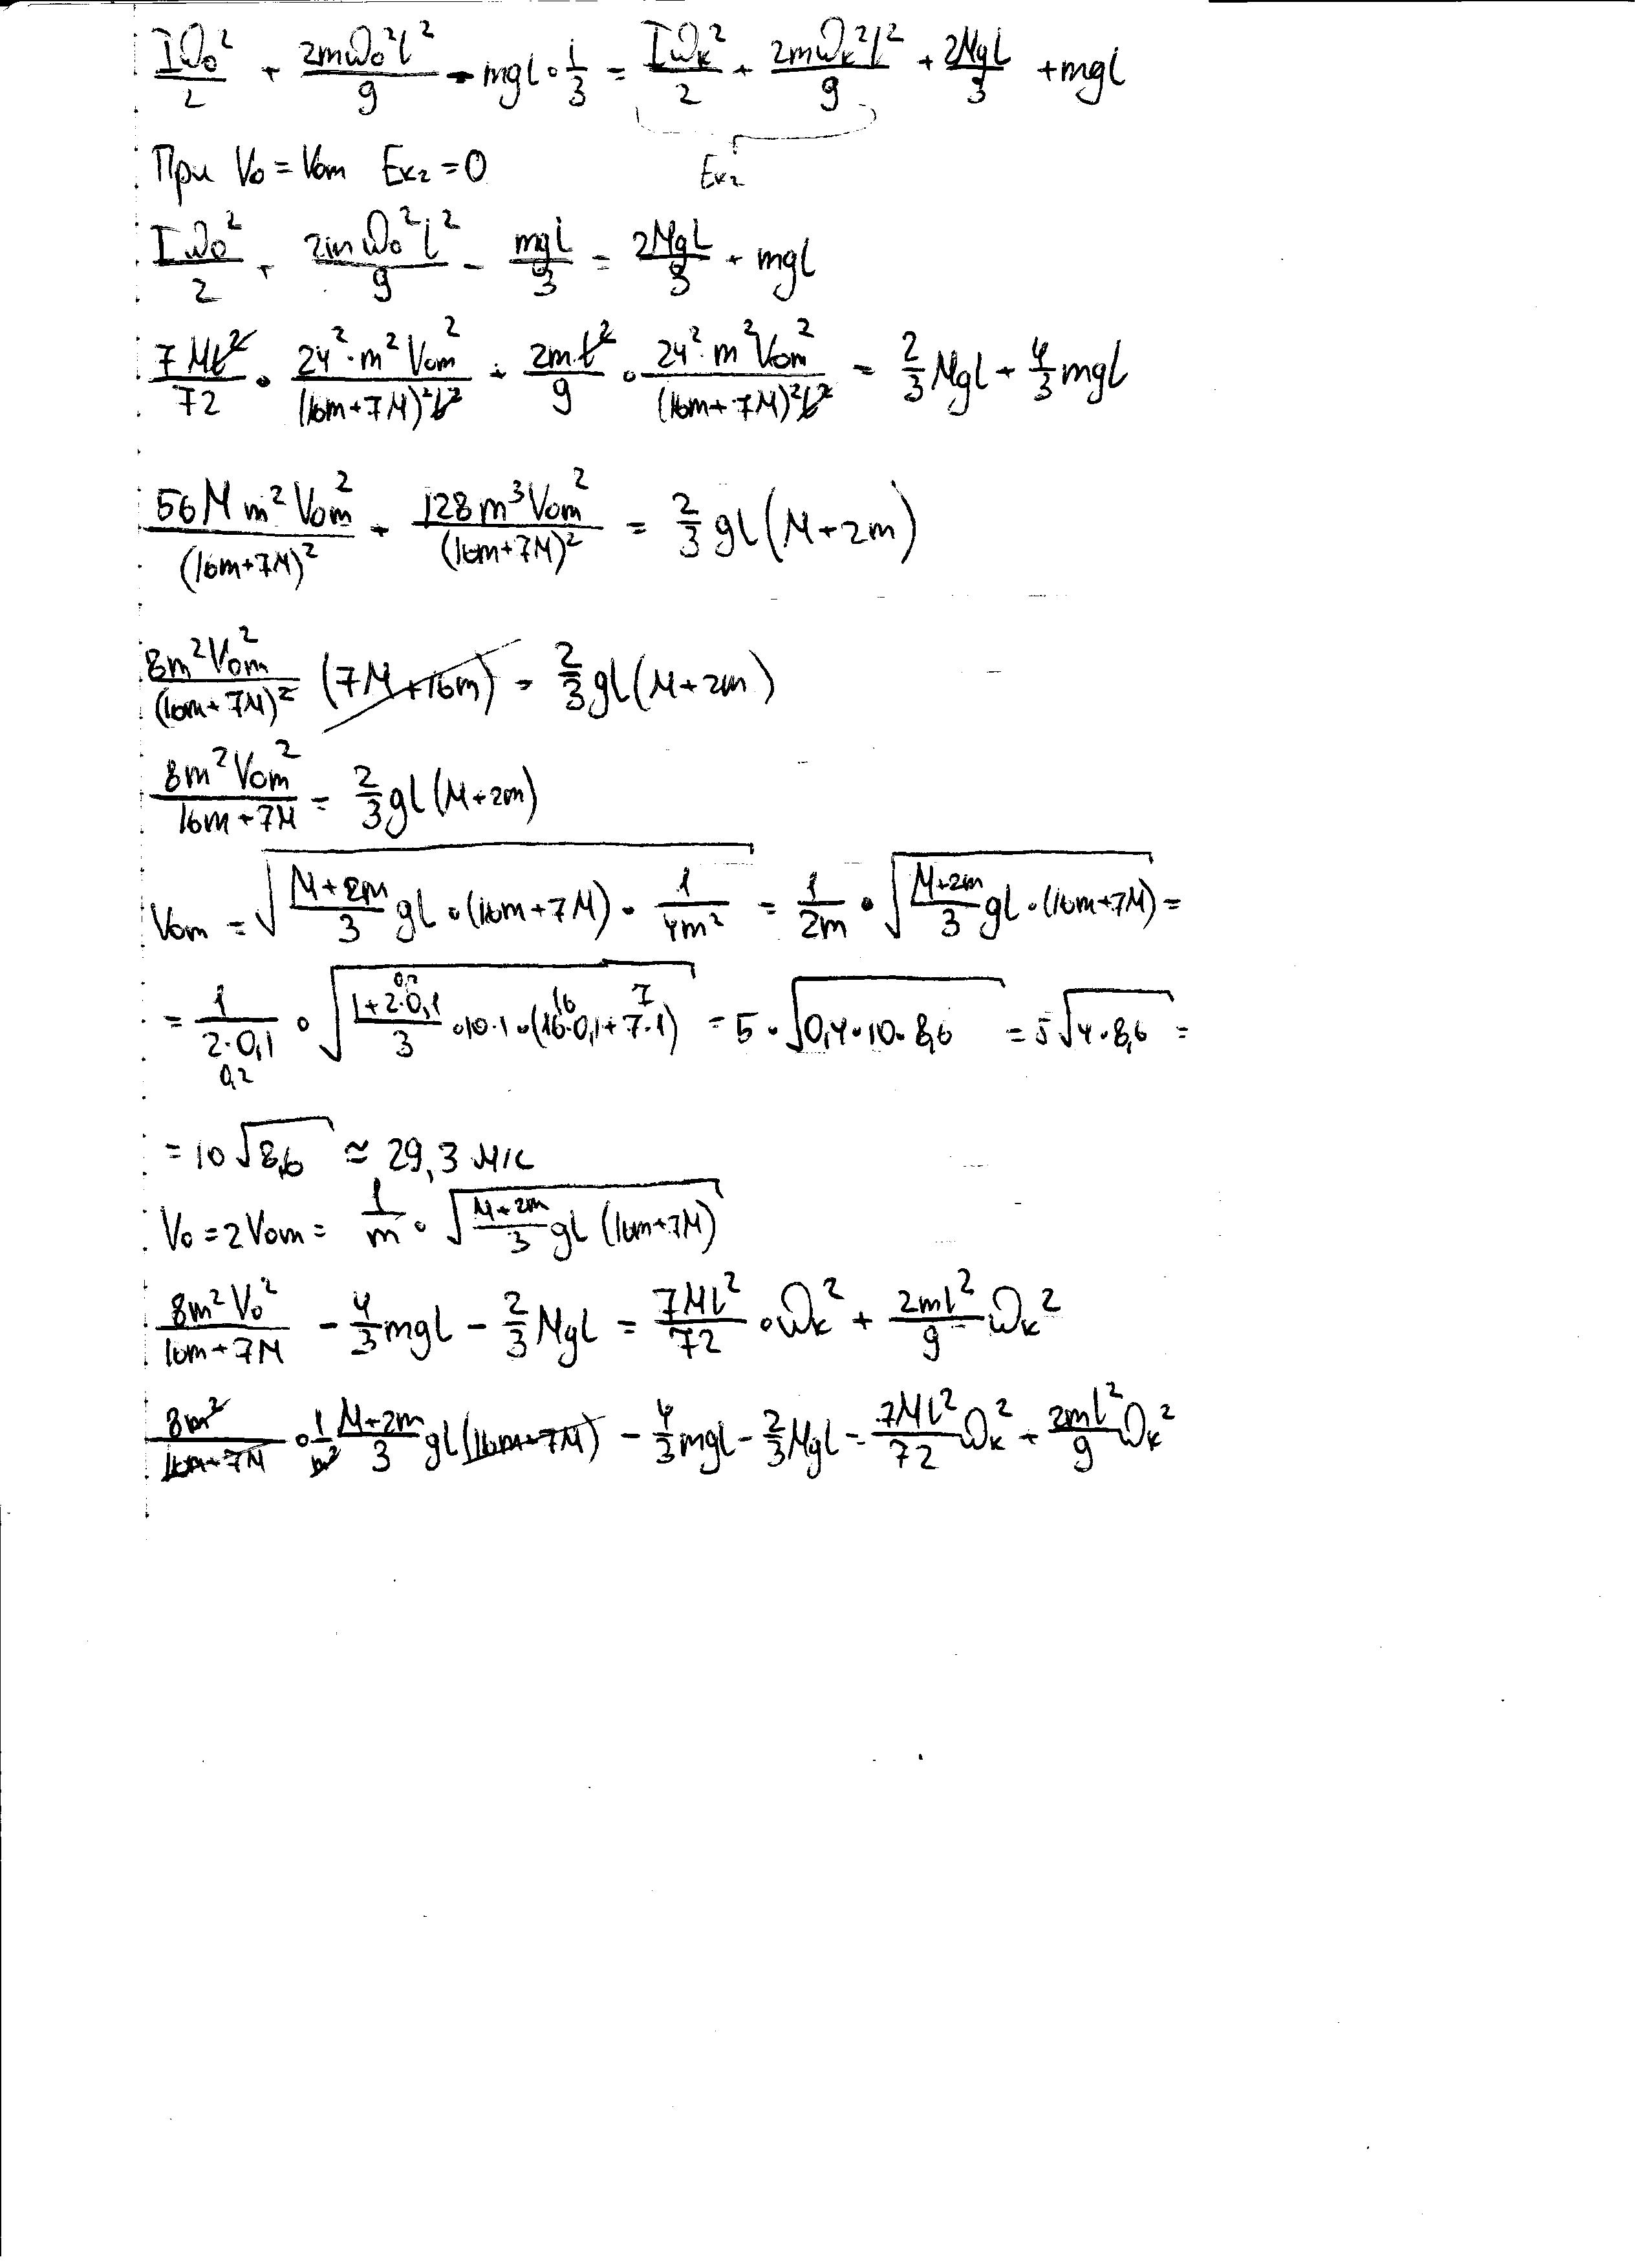 Iω₀²/2 + 2mω₀²l²/9 - mgl·1/3 = Iωₖ²/2 + 2mωₖ²l²/9 + 2Mgl/3 + mgl
Eк₂
При V₀ = V₀m Eк₂ = 0
Iω₀²/2 + 2mω₀²l²/9 - mgl/3 = 2Mgl/3 + mgl
7Ml²/72 · 24²·m²V₀m²/(16m+7M)²l² + 2ml²/9 · 24²·m²V₀m²/(16m+7M)²l² = 2/3 Mgl + 4/3 mgl
56Mm²V₀m²/(16m+7M)² + 128m³V₀m²/(16m+7M)² = 2/3 gl(M+2m)
8m²V₀m²/(16m+7M)² (7M+16m) = 2/3 gl(M+2m)
8m²V₀m²/16m+7M = 2/3 gl(M+2m)
V₀m = √((M+2m)/3 gl·(16m+7M)·1/4m²) = 1/2m · √((M+2m)/3 gl·(16m+7M)) =
= 1/(2·0,1) · √((1+2·0,1)/3 ·10·1·(16·0,1+7·1)) = 5·√(0,4·10·8,6) = 5√(4·8,6) =
= 10√8,6 ≈ 29,3 м/с
V₀ = 2V₀m = 1/m · √((M+2m)/3 gl (16m+7M))
8m²V₀²/16m+7M - 4/3 mgl - 2/3 Mgl = 7Ml²/72 · ωₖ² + 2ml²/9 ωₖ²
8m²/16m+7M · 1/m² (M+2m)/3 gl(16m+7M) - 4/3 mgl - 2/3 Mgl = 7Ml²/72 ωₖ² + 2ml²/9 ωₖ²